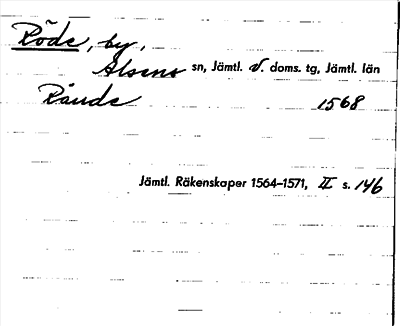 Röde, by,
Alsens sn, Jämtl. V. doms. tg, Jämtl. län
Rånde 1568
Jämtl. Räkenskaper 1564–1571, II s. 146